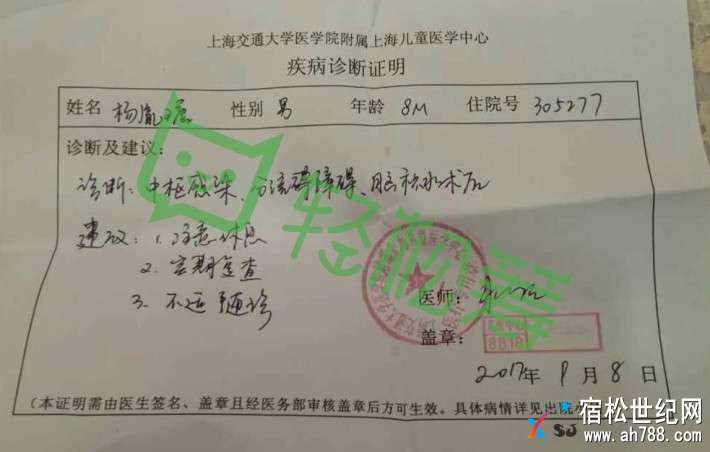 上海交通大学医学院附属上海儿童医学中心
疾病诊断证明
姓名 杨胤 性别 男 年龄 8M 住院号 305277
诊断及建议:
诊断: 中枢感染、障碍、脑积水术后
建议: 1. 注意休息
2. 定期复查
3. 不适随诊
轻松筹
医师:
盖章:
8818
2017年 9月 8日
(本证明需由医生签名、盖章且经医务部审核盖章后方可生效。具体病情详见出院小
SJ
宿松世纪网
www.ah788.com